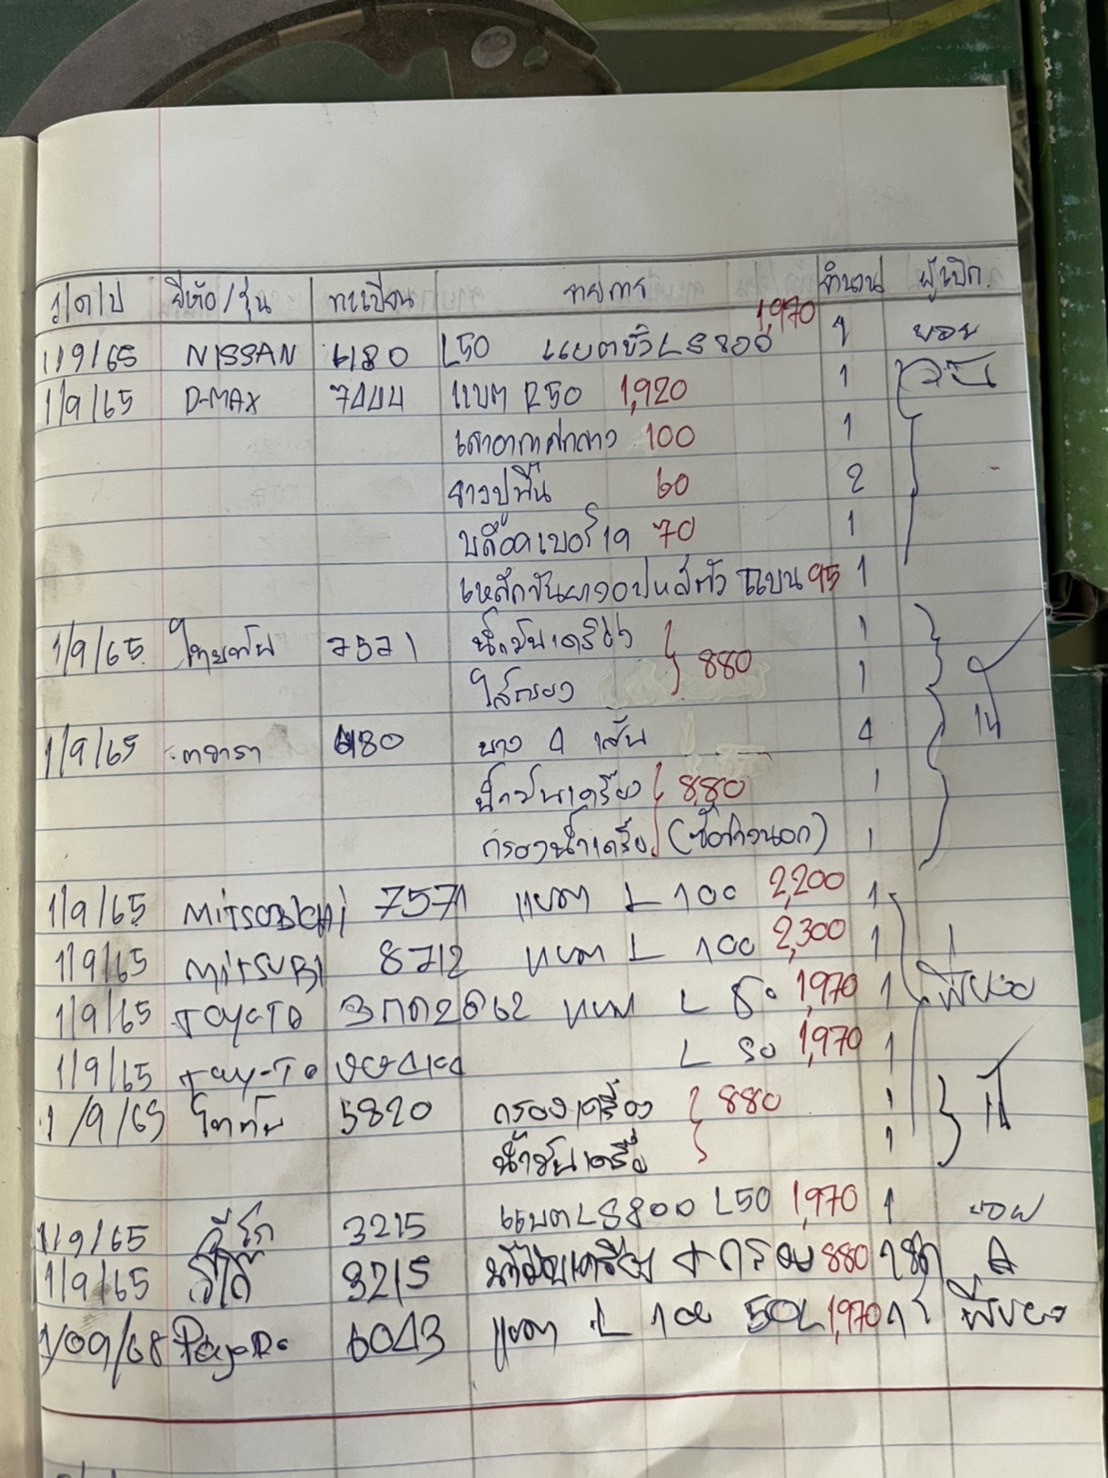 ว/ด/ป ยี่ห้อ/รุ่น ทะเบียน รายการ จำนวน ผู้เบิก.
1/9/65 NISSAN 4180 L50 แบตขั้ว LS800 1,970 1 บอย
1/9/65 D-MAX 7444 แบต R50 1,920 1
เสาอากาศกลาง 100 1
ยางปูพื้น 60 2
บล็อคเบอร์ 19 70 1
เหล็กขันยางอปหสตัว แบน 95 1
1/9/65 ไทยทัน 7571 น้ำมันเครื่อง 1
ไส้กรอง 880 1
1/9/65 นาวารา 4180 ยาง 4 เส้น 4
น้ำมันเครื่อง 880 1
กรองน้ำเครื่อง (ซื้อข้างนอก) 1
1/9/65 MITSOBICHI 7571 แบต L 100 2,200 1
1/9/65 MITSUBI 8712 แบต L 100 2,300 1
1/9/65 TOYOTO 3กด2862 แบต L 50 1,970 1 พี่ยอง
1/9/65 Tay-To L 50 1,970 1
1/9/65 ไททัน 5820 กรองเครื่อง 880 1
น้ำมันเครื่อ 1
1/9/65 วีโก้ 3215 แบต LS800 L50 1,970 1 บอย
1/9/65 วีโก้ 3215 น้ำมันเครื่อง + กรอง 880 A
1/09/68 PajeRo 6043 แบต L 100 50L 1,970 พี่ยอง